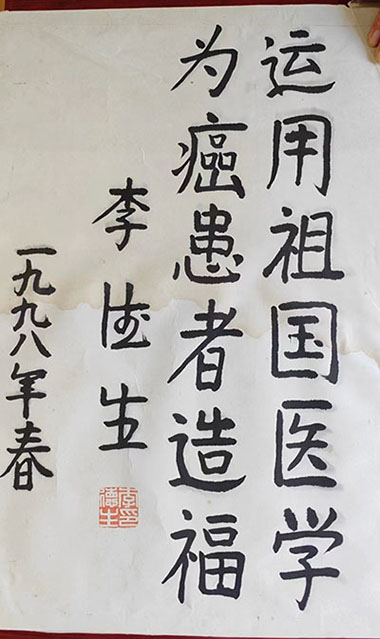 运用祖国医学
为癌患者造福
李德生
一九九八年春
李德生印